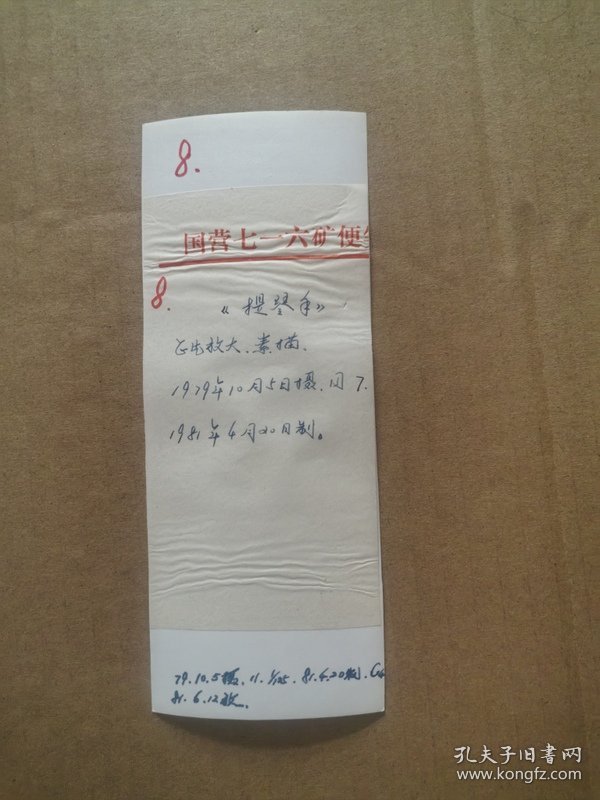 8.
国营七一六矿便
8.
《提琴手》
正出放大、素描、
1979年10月5日摄.同7.
1981年4月20日制。
79.10.5摄. 11. 1/125. 81.4.20制.
81.6.12放.
孔夫子旧书网
www.kongfz.com